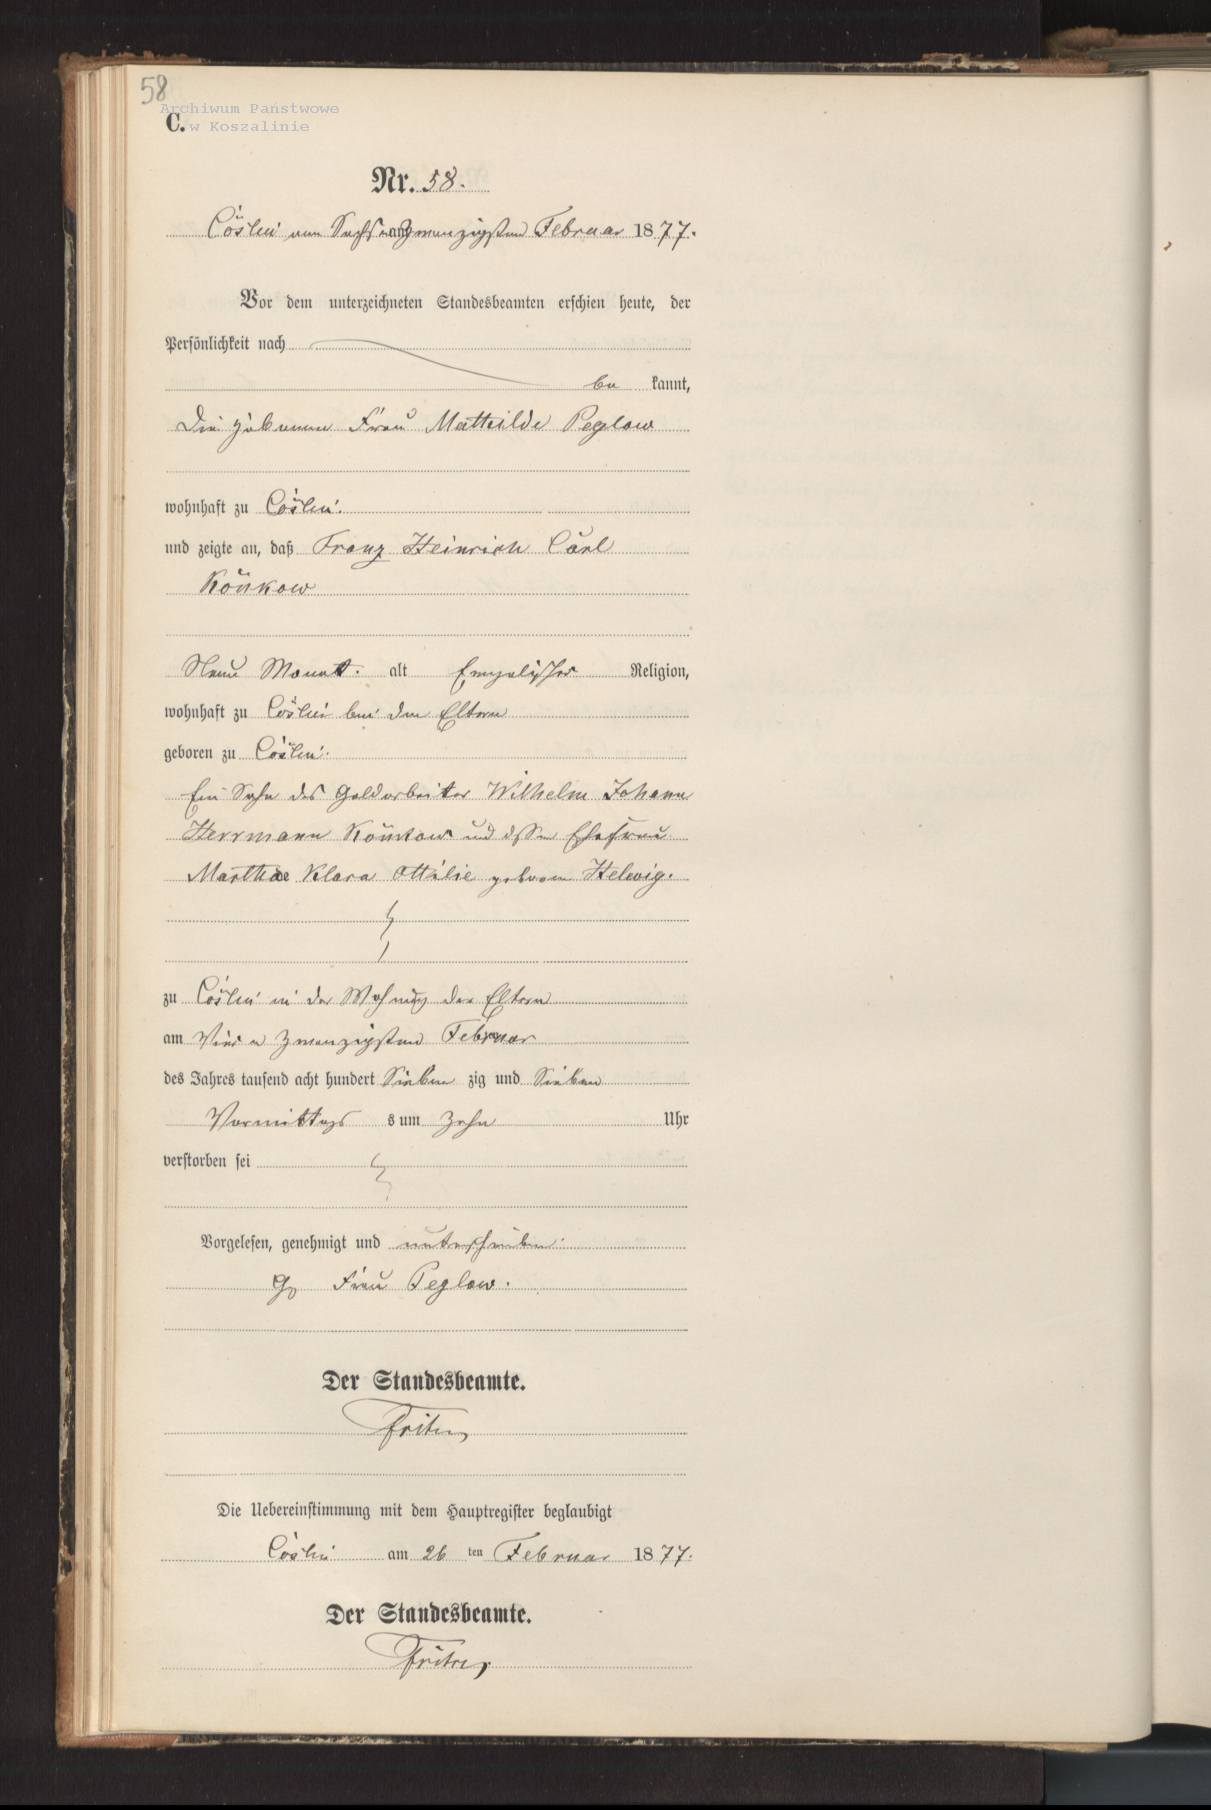 58
Archiwum Państwowe
w Koszalinie
C.
Nr. 58.
Cöslin am Sechs u Zwanzigsten Februar 1877.
Vor dem unterzeichneten Standesbeamten erschien heute, der
Persönlichkeit nach
be kannt,
Die Hebamme Frau Mathilde Peglow
wohnhaft zu Cöslin.
und zeigte an, daß Franz Heinrich Carl
Neun Monat. alt Evangelischer Religion,
wohnhaft zu Cöslin bei den Eltern
geboren zu Cöslin.
Ein Sohn des Goldarbeiter Wilhelm Johann
Herrmann und dessen Ehefrau
Martha Klara Ottilie geborene Helwig.
zu Cöslin in der Wohnung der Eltern
am Vier u Zwanzigsten Februar
des Jahres tausend acht hundert Sieben zig und Sieben
Vormittags s um Zehn Uhr
verstorben sei
Vorgelesen, genehmigt und unterschrieben.
Frau Peglow.
Der Standesbeamte.
Die Uebereinstimmung mit dem Hauptregister beglaubigt
Cöslin am 26 ten Februar 1877.
Der Standesbeamte.